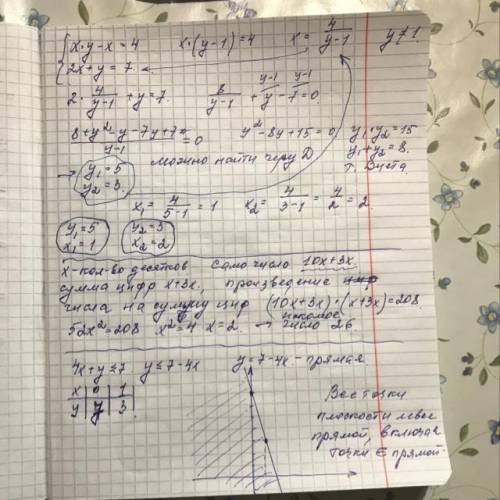 x·y-x=4 x·(y-1)=4 x=4/(y-1) y≠1
2x+y=7.
2·4/(y-1)+y=7. 8/(y-1)+y-7=0.
(8+y²-y-7y+7)/(y-1)=0 y²-8y+15=0 y₁·y₂=15
y₁+y₂=8.
можно найти через D т. Виета
y₁=5
y₂=3.
x₁=4/(5-1)=1 x₂=4/(3-1)=4/2=2.
y₁=5 y₂=3
x₁=1 x₂=2
x-кол-во десятков Само число 10x+3x.
сумма цифр x+3x, произведение
числа на сумму циф (10x+3x)·(x+3x)=208
52x²=208 x²=4 x=2. → искомое число 26
4x+y≤7 y≤7-4x y=7-4x-прямая.
x 0 1
y 7 3.
Все точки
плоскости левее
прямой, включая
точки ∈ прямой.